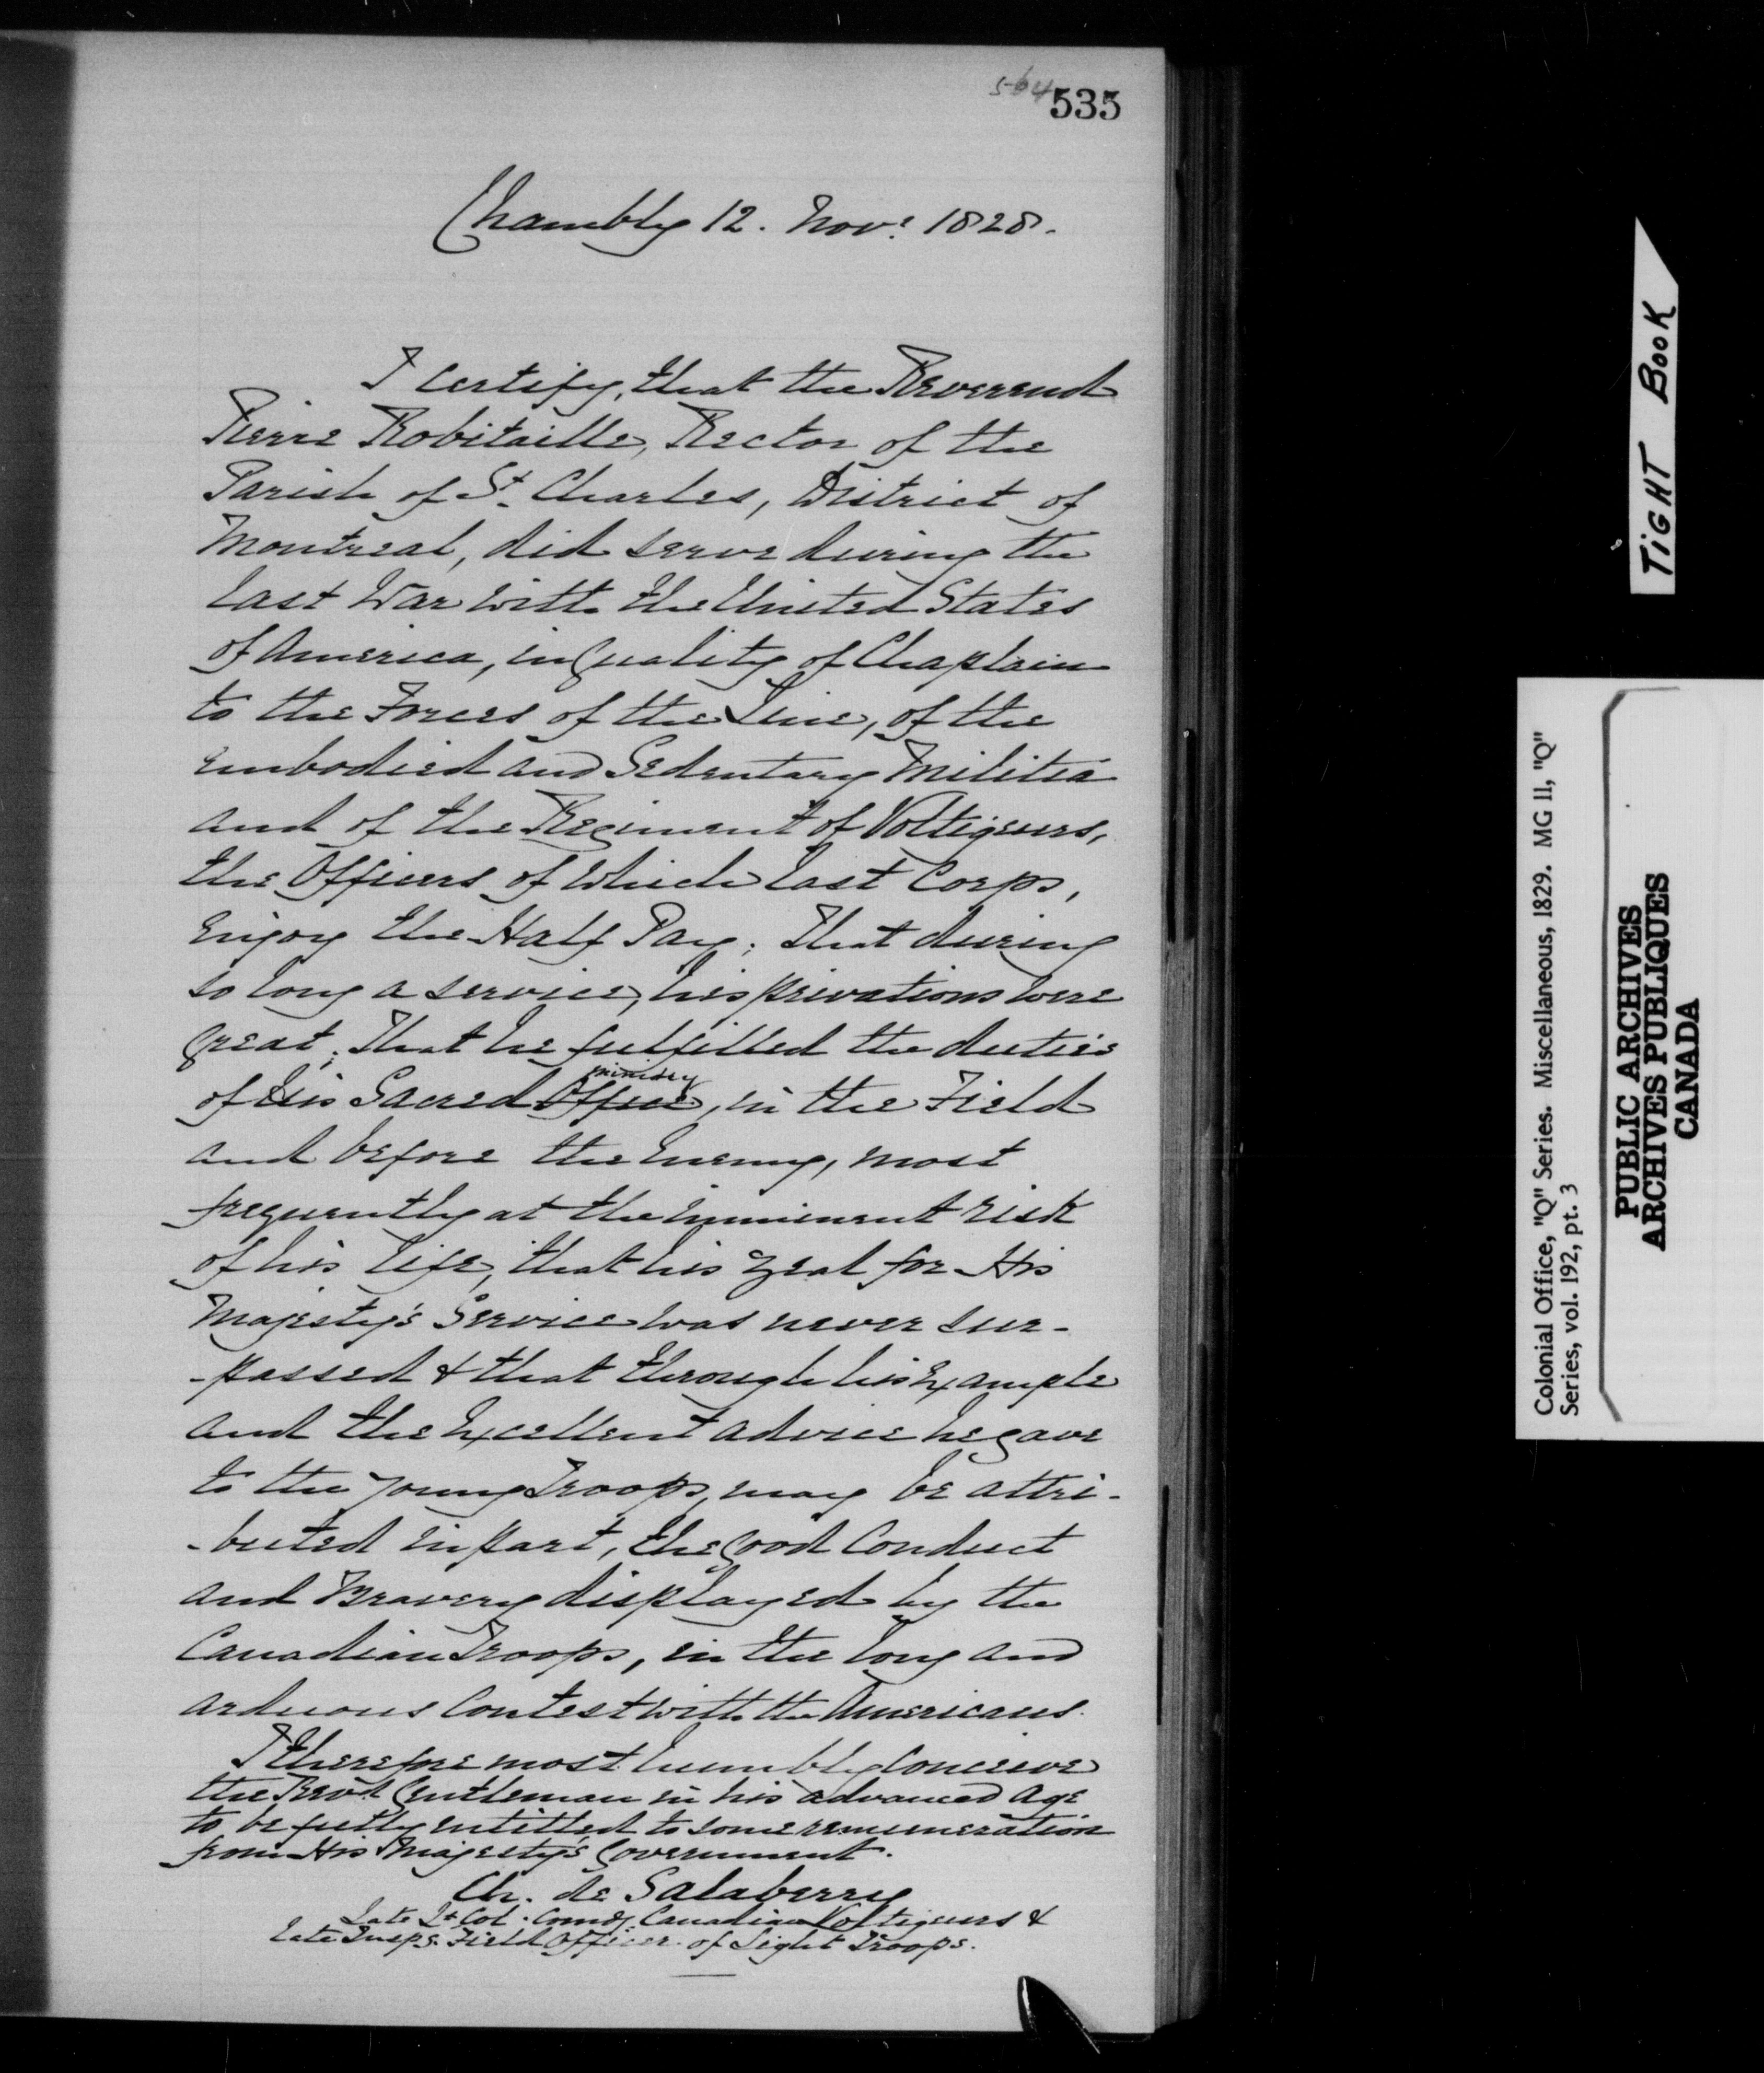 564
535
Chambly 12. Novr. 1828.
I certify, that the Reverend
Pierre Robitaille, Rector of the
Parish of St. Charles, District of
Montreal, did serve during the
last War with the United States
of America, in quality of Chaplain
to the Forces of the Line, of the
embodied and Sedentary Militia
and of the Regiment of Voltigeurs,
the Officers of which last Corps,
enjoy the Half Pay; That during
so long a service, his privations were
great; That he fulfilled the duties
ministry
of His Sacred Office, in the Field
and before the Enemy, most
frequently at the imminent risk
of his life, that his zeal for His
Majesty's Service was never sur-
-passed & that through his Example
and the Excellent advice he gave
to the young Troops, may be attri-
-buted in part, the good Conduct
and Bravery displayed by the
Canadian Troops, in the long and
arduous Contest with the Americans.
I therefore most humbly conceive
the Revd. Gentleman in his advanced age
to be fully entitled to some remuneration
from His Majesty's Government.
Ch. de Salaberry
Late Lt. Col. Comdg. Canadian Voltigeurs &
late Inspg. Field Officer of Light Troops.
TIGHT BOOK
Colonial Office, "Q" Series. Miscellaneous, 1829. MG 11, "Q"
Series, vol. 192, pt. 3
PUBLIC ARCHIVES
ARCHIVES PUBLIQUES
CANADA